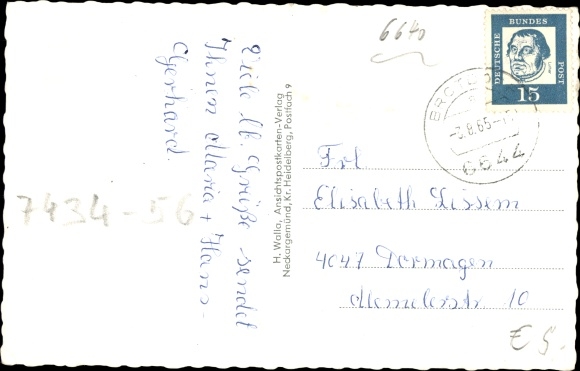 6640
Viele lb. Grüße sendet
Ihnen Maria + Hans-
Gerhard
7434-56
H. Walla, Ansichtspostkarten-Verlag
Neckargemünd, Kr. Heidelberg, Postfach 9
DEUTSCHE BUNDES POST
15
-2.8.65-
6544
Frl
Elisabeth
4047 Dormagen
10
€ 9.